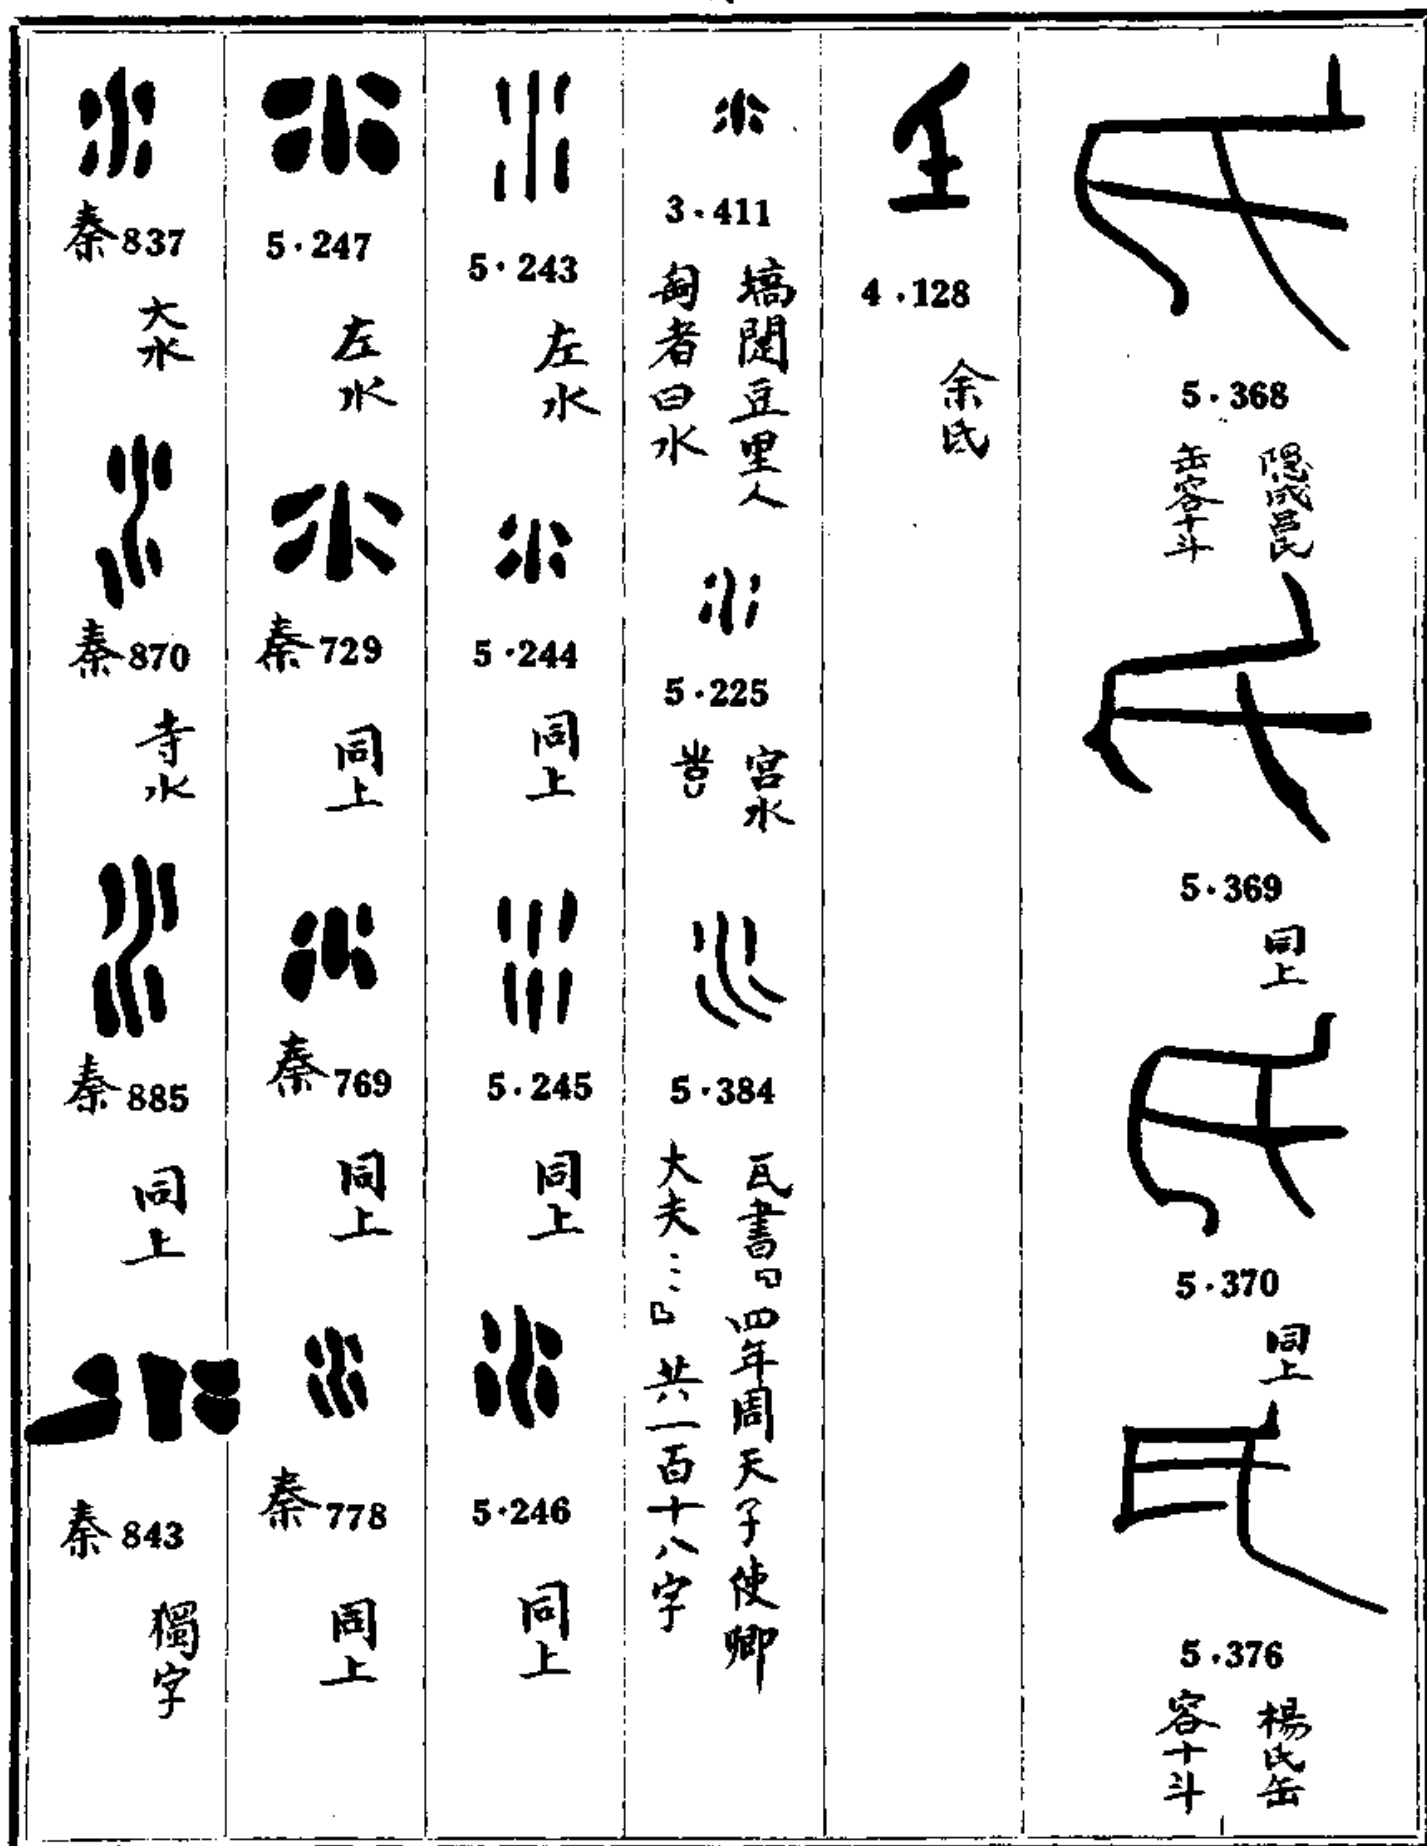 5·368
隱成呂氏
缶容十斗
5·369
同上
5·370
同上
5·376
楊氏缶
容十斗
4·128
余氏
3·411
豆里人
匋者曰水
5·225
宮水
5·384
瓦書『四年周天子使卿
大夫…』共一百十八字
5·243
左水
5·244
同上
5·245
同上
5·246
同上
5·247
左水
秦729
同上
秦769
同上
秦778
同上
秦837
大水
秦870
寺水
秦885
同上
秦843
獨字